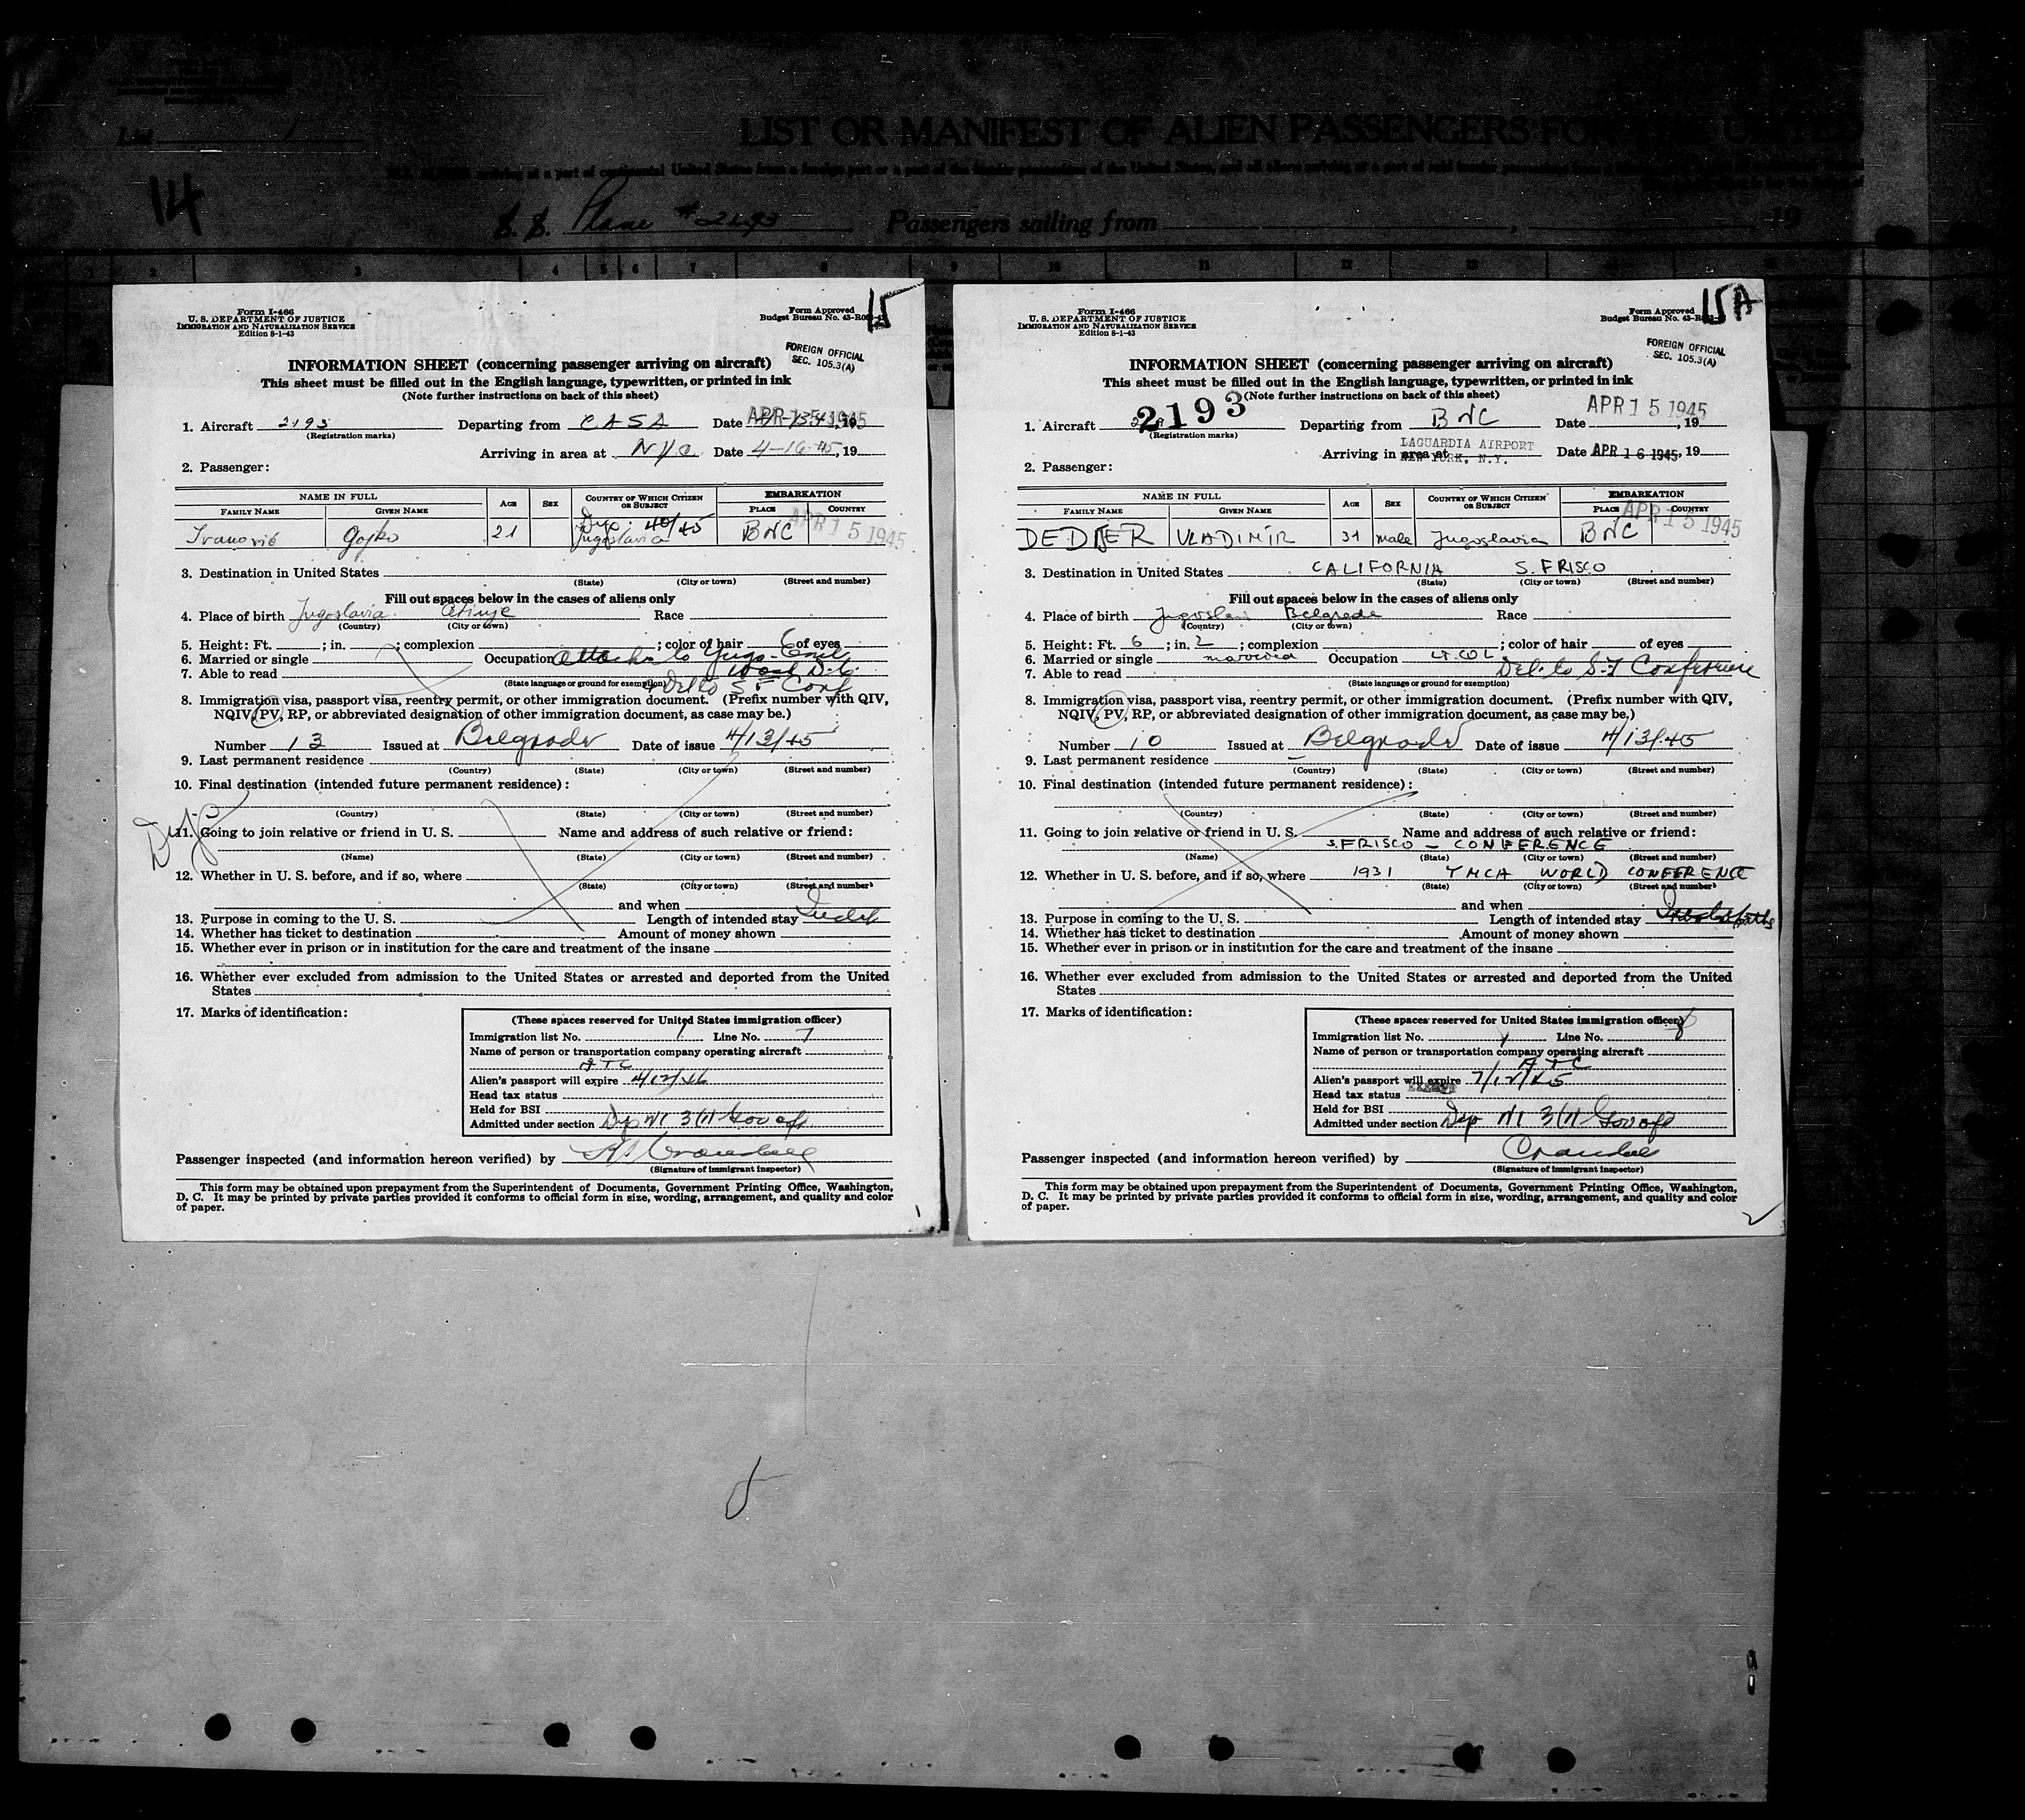 List 1
LIST OR MANIFEST OF ALIEN PASSENGERS FOR THE UNITED
14
S. S. Plane # 2193 Passengers sailing from , 19
15
Form I-466
U. S. DEPARTMENT OF JUSTICE
IMMIGRATION AND NATURALIZATION SERVICE
Edition 8-1-43
Form Approved
Budget Bureau No. 43-R0
FOREIGN OFFICIAL
SEC. 105.3(A)
INFORMATION SHEET (concerning passenger arriving on aircraft)
This sheet must be filled out in the English language, typewritten, or printed in ink
(Note further instructions on back of this sheet)
1. Aircraft 2193 Departing from CASA Date APR 15 1945, 19
(Registration marks)
Arriving in area at NYC Date 4-16-45, 19
2. Passenger:
NAME IN FULL AGE SEX COUNTRY OF WHICH CITIZEN OR SUBJECT EMBARKATION
FAMILY NAME GIVEN NAME PLACE COUNTRY
Ivanović Gojko 21 Dip. 40/45 Jugoslavia BNC APR 15 1945
3. Destination in United States
(State) (City or town) (Street and number)
Fill out spaces below in the cases of aliens only
4. Place of birth Jugoslavia Cetinje Race
(Country) (City or town)
5. Height: Ft. ; in. ; complexion ; color of hair of eyes
6. Married or single Occupation Attache to Yugo-Emb
7. Able to read Wash D.C.
(State language or ground for exemption) + Del to S F Conf
8. Immigration visa, passport visa, reentry permit, or other immigration document. (Prefix number with QIV,
NQIV, PV, RP, or abbreviated designation of other immigration document, as case may be.)
Number 13 Issued at Belgrade Date of issue 4/13/45
9. Last permanent residence
(Country) (State) (City or town) (Street and number)
10. Final destination (intended future permanent residence):
(Country) (State) (City or town) (Street and number)
11. Going to join relative or friend in U. S. Name and address of such relative or friend:
(Name) (State) (City or town) (Street and number)
12. Whether in U. S. before, and if so, where
(State) (City or town) (Street and number)
and when
13. Purpose in coming to the U. S. Length of intended stay Indef
14. Whether has ticket to destination Amount of money shown
15. Whether ever in prison or in institution for the care and treatment of the insane
16. Whether ever excluded from admission to the United States or arrested and deported from the United
States
17. Marks of identification:
(These spaces reserved for United States immigration officer)
Immigration list No. 1 Line No. 7
Name of person or transportation company operating aircraft
ATC
Alien's passport will expire 4/12/46
Head tax status
Held for BSI
Admitted under section Dip N1 3(1) Gov off
Passenger inspected (and information hereon verified) by
(Signature of immigrant inspector)
This form may be obtained upon prepayment from the Superintendent of Documents, Government Printing Office, Washington,
D. C. It may be printed by private parties provided it conforms to official form in size, wording, arrangement, and quality and color
of paper.
1
15A
Form I-466
U. S. DEPARTMENT OF JUSTICE
IMMIGRATION AND NATURALIZATION SERVICE
Edition 8-1-43
Form Approved
Budget Bureau No. 43-R
FOREIGN OFFICIAL
SEC. 105.3(A)
INFORMATION SHEET (concerning passenger arriving on aircraft)
This sheet must be filled out in the English language, typewritten, or printed in ink
(Note further instructions on back of this sheet)
1. Aircraft 2193 Departing from BNC Date APR 15 1945, 19
(Registration marks)
Arriving in area at LAGUARDIA AIRPORT NEW YORK, N.Y. Date APR 16 1945, 19
2. Passenger:
NAME IN FULL AGE SEX COUNTRY OF WHICH CITIZEN OR SUBJECT EMBARKATION
FAMILY NAME GIVEN NAME PLACE COUNTRY
DEDIJER VLADIMIR 31 male Jugoslavia BNC APR 15 1945
3. Destination in United States CALIFORNIA S. FRISCO
(State) (City or town) (Street and number)
Fill out spaces below in the cases of aliens only
4. Place of birth Jugoslavi Belgrade Race
(Country) (City or town)
5. Height: Ft. 6 ; in. 2 ; complexion ; color of hair of eyes
6. Married or single married Occupation LT. COL
7. Able to read Del. to S-F Conference
(State language or ground for exemption)
8. Immigration visa, passport visa, reentry permit, or other immigration document. (Prefix number with QIV,
NQIV, PV, RP, or abbreviated designation of other immigration document, as case may be.)
Number 10 Issued at Belgrade Date of issue 4/13/45
9. Last permanent residence
(Country) (State) (City or town) (Street and number)
10. Final destination (intended future permanent residence):
(Country) (State) (City or town) (Street and number)
11. Going to join relative or friend in U. S. Name and address of such relative or friend:
S. FRISCO - CONFERENCE
(Name) (State) (City or town) (Street and number)
12. Whether in U. S. before, and if so, where 1931 YMCA WORLD CONFERENCE
(State) (City or town) (Street and number)
and when
13. Purpose in coming to the U. S. Length of intended stay
14. Whether has ticket to destination Amount of money shown
15. Whether ever in prison or in institution for the care and treatment of the insane
16. Whether ever excluded from admission to the United States or arrested and deported from the United
States
17. Marks of identification:
(These spaces reserved for United States immigration officer)
Immigration list No. 1 Line No. 8
Name of person or transportation company operating aircraft
ATC
Alien's passport will expire 7/12/45
Head tax status EXEMPT
Held for BSI
Admitted under section Dip N1 3(1) Gov off
Passenger inspected (and information hereon verified) by
(Signature of immigrant inspector)
This form may be obtained upon prepayment from the Superintendent of Documents, Government Printing Office, Washington,
D. C. It may be printed by private parties provided it conforms to official form in size, wording, arrangement, and quality and color
of paper.
2